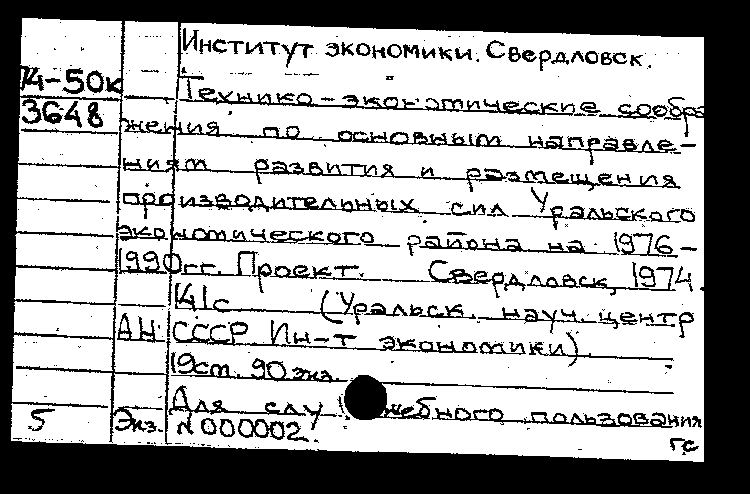 Институт экономики. Свердловск.
74-50к
3648
Технико-экономические сообра
жения по основным направле-
ниям развития и размещения
производительных сил Уральского
экономического района на 1976-
1990гг. Проект. Свердловск, 1974.
141с (Уральск. науч. центр
АН СССР. Ин-т экономики).
19см. 90 экз.
Для служебного пользования
5 Экз. №000002.
гс